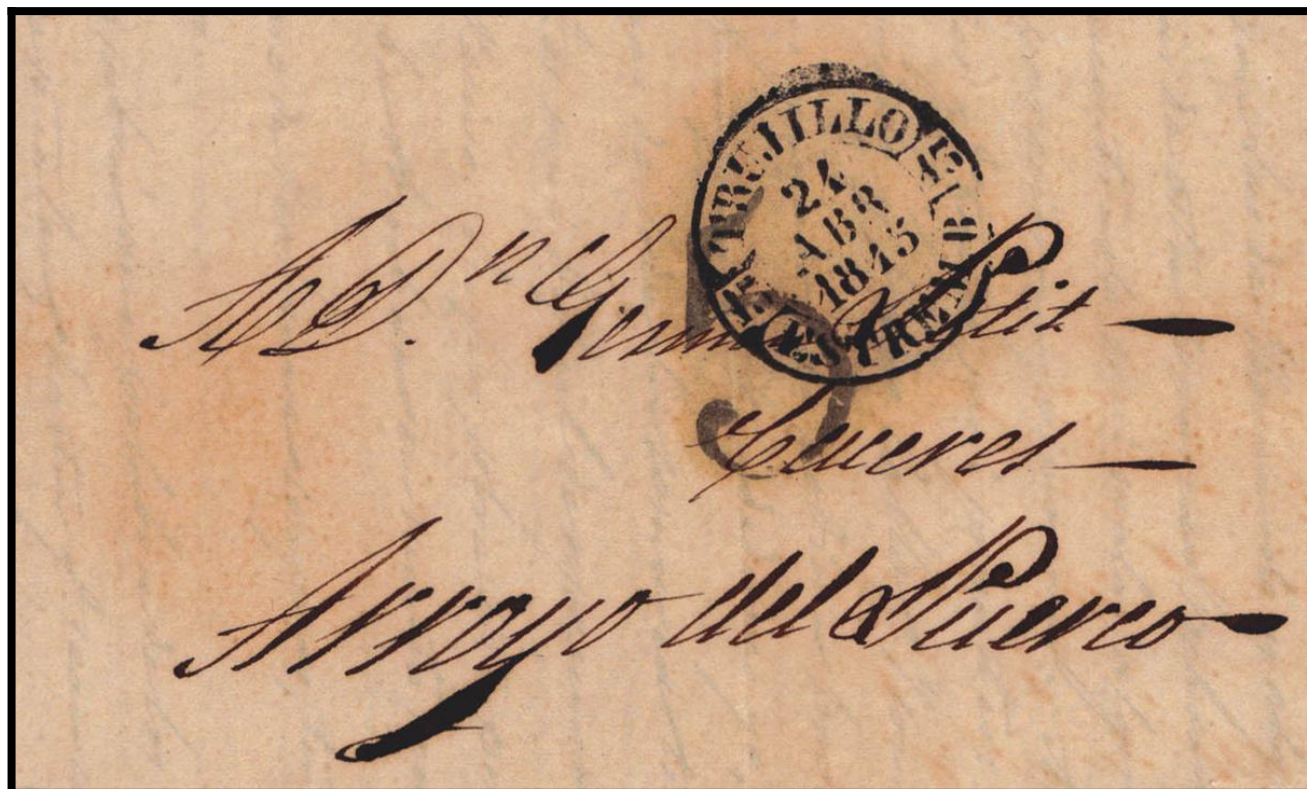 TRUJILLO
24
ABR
1845
ESTREM. B
A D.n German Petit —
Caceres —
Arroyo del Puerco